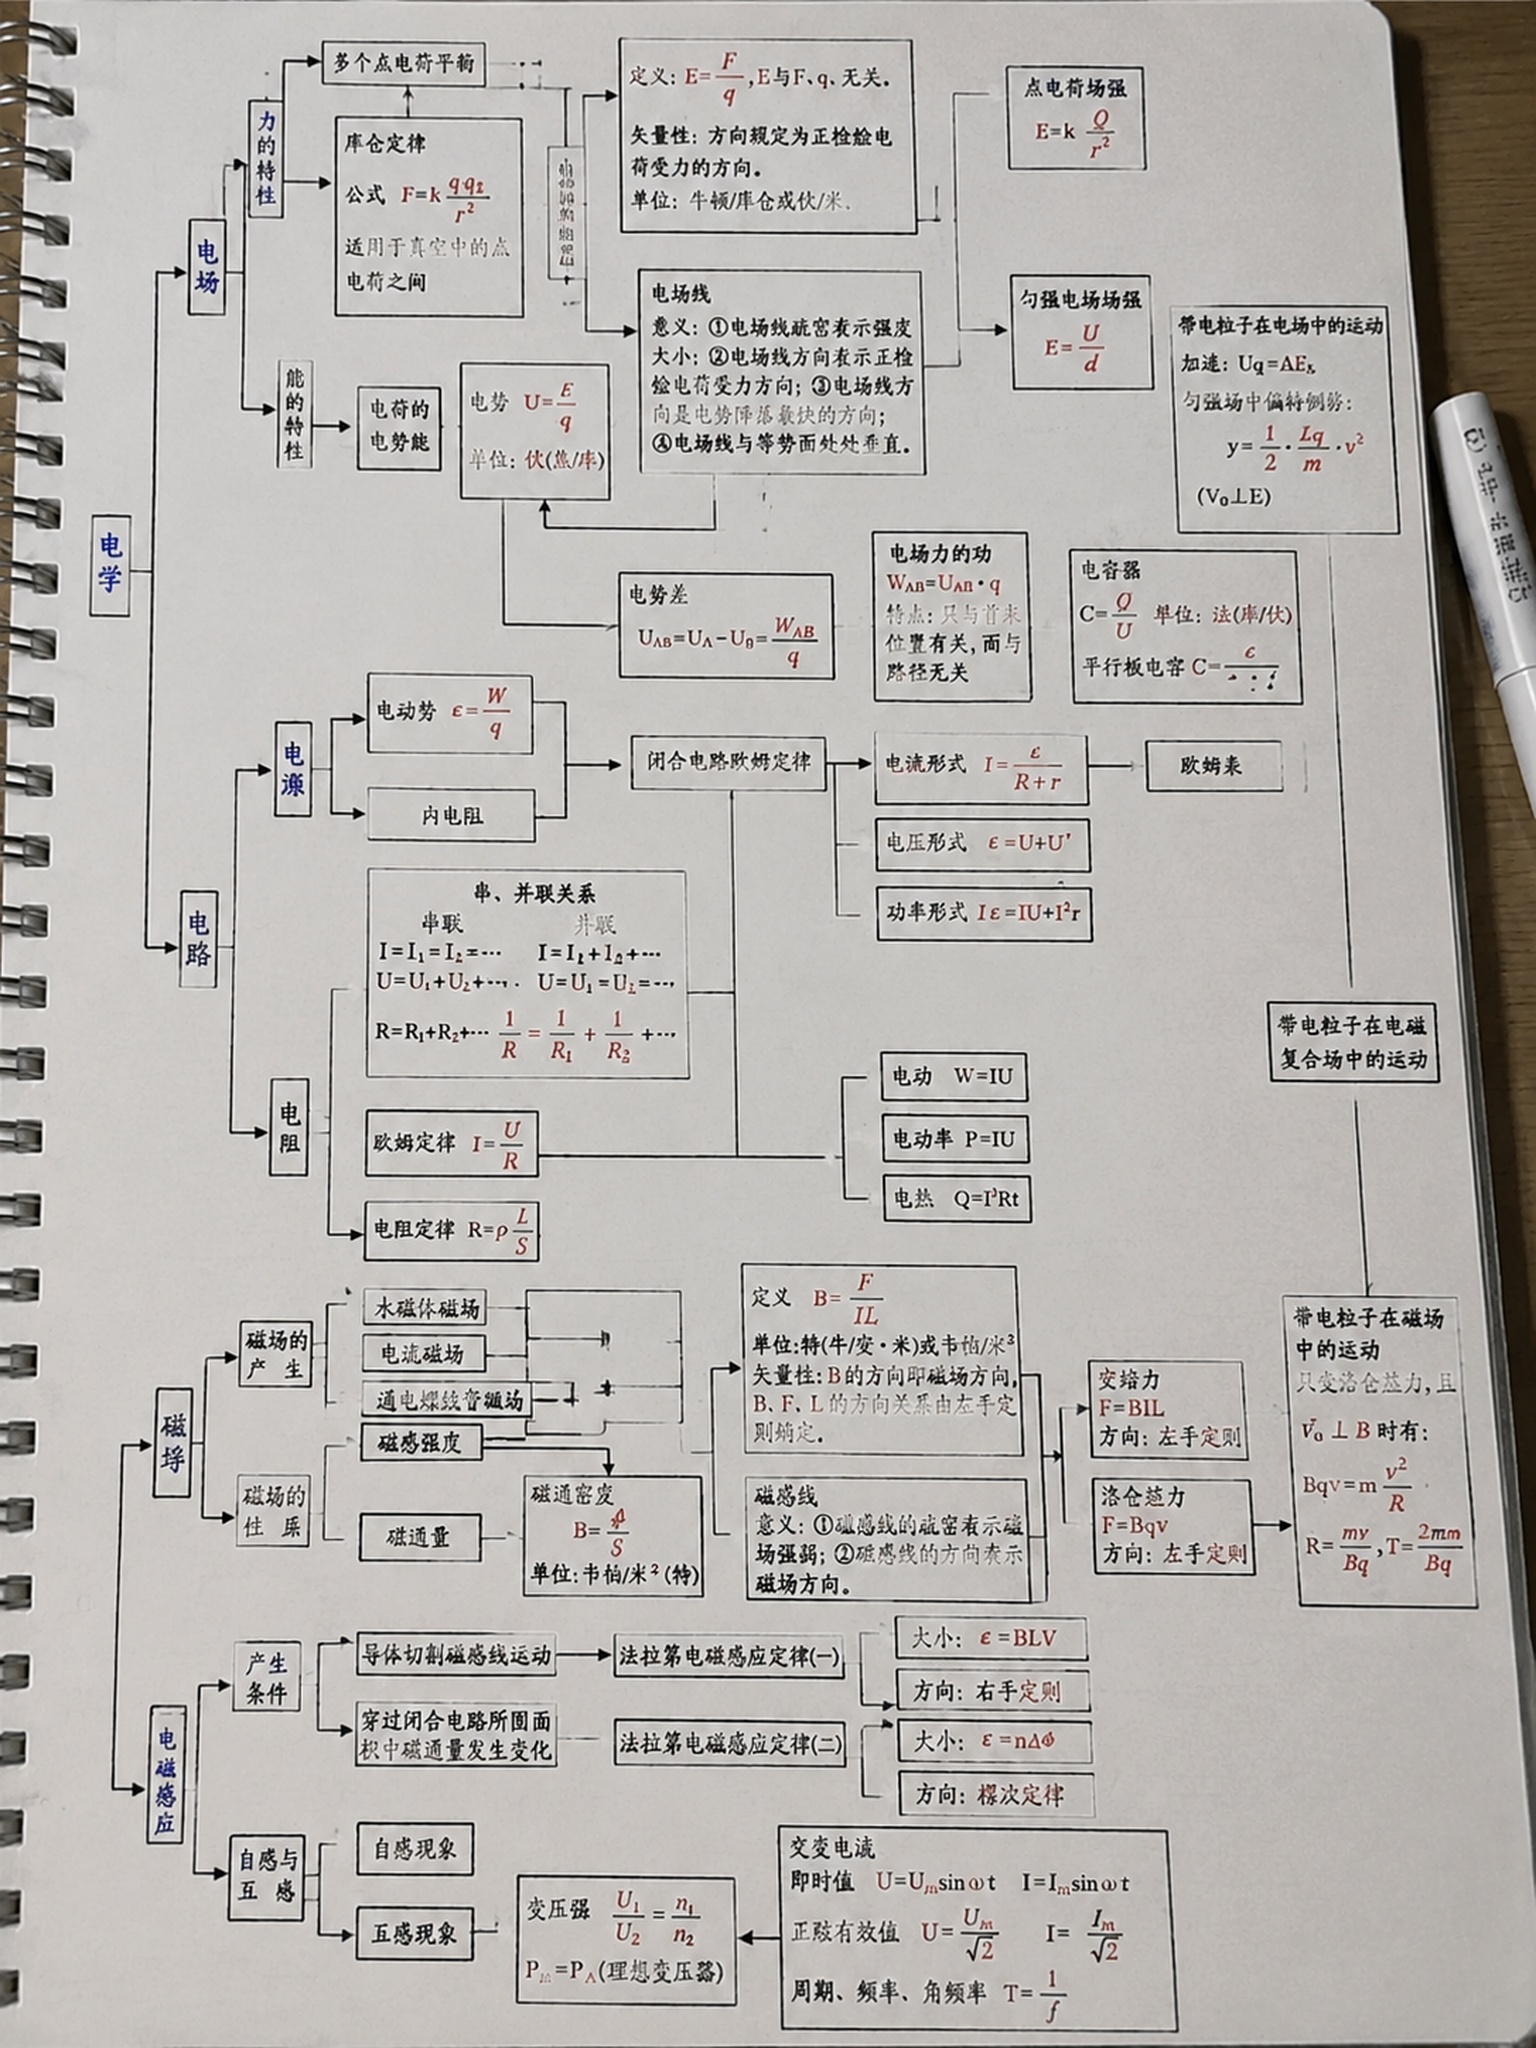 多个点电荷平衡
力的特性
库仑定律
公式 F=k q₁q₂/r²
适用于真空中的点
电荷之间
定义: E=F/q,E与F、q、无关。
矢量性: 方向规定为正检验电
荷受力的方向。
单位: 牛顿/库仑或伏/米.
点电荷场强
E=k Q/r²
电场
电场线
意义: ①电场线疏密表示强度
大小; ②电场线方向表示正检
验电荷受力方向; ③电场线方
向是电势降落最快的方向;
④电场线与等势面处处垂直。
匀强电场场强
E=U/d
带电粒子在电场中的运动
加速: Uq=
匀强场中偏转
y=1/2·q/m·v²
(V₀⊥E)
能的特性
电荷的
电势能
电势 U=E/q
单位: 伏(焦/库)
电学
电势差
U_AB=U_A-U_B=W_AB/q
电场力的功
W_AB=U_AB·q
特点: 只与首末
位置有关,而与
路径无关
电容器
C=Q/U 单位: 法(库/伏)
平行板电容 C=ε
电源
电动势 ε=W/q
内电阻
闭合电路欧姆定律
电流形式 I=ε/(R+r)
欧姆表
电压形式 ε=U+U′
功率形式 Iε=IU+I²r
电路
串、并联关系
串联 并联
I=I₁=I₂=··· I=I₁+I₂+···
U=U₁+U₂+···. U=U₁=U₂=···
R=R₁+R₂+··· 1/R=1/R₁+1/R₂+···
带电粒子在电磁
复合场中的运动
电阻
电动 W=IU
欧姆定律 I=U/R
电动率 P=IU
电热 Q=I²Rt
电阻定律 R=ρL/S
磁场的
产 生
水磁体磁场
电流磁场
通电螺线管磁场
定义 B=F/IL
单位:特(牛/安·米)或韦伯/米²
矢量性: B的方向即磁场方向,
B、F、L的方向关系由左手定
则确定。
安培力
F=BIL
方向: 左手定则
带电粒子在磁场
中的运动
只受洛仑兹力,且
v₀⊥B时有:
Bqv=m v²/R
R=mv/Bq,T=2πm/Bq
磁场
磁感强度
磁场的
性 质
磁通量
磁通密度
B=φ/S
单位:韦伯/米²(特)
磁感线
意义: ①磁感线的疏密表示磁
场强弱; ②磁感线的方向表示
磁场方向。
洛仑兹力
F=Bqv
方向: 左手定则
产生
条件
导体切割磁感线运动
法拉第电磁感应定律(一)
大小: ε=BLV
方向: 右手定则
穿过闭合电路所围面
积中磁通量发生变化
法拉第电磁感应定律(二)
大小: ε=nΔΦ
方向: 楞次定律
电磁感应
自感与
互 感
自感现象
互感现象
变压器 U₁/U₂=n₁/n₂
(理想变压器)
交变电流
即时值 U=Uₘsinωt I=Iₘsinωt
正弦有效值 U=Uₘ/√2 I=Iₘ/√2
周期、频率、角频率 T=1/f